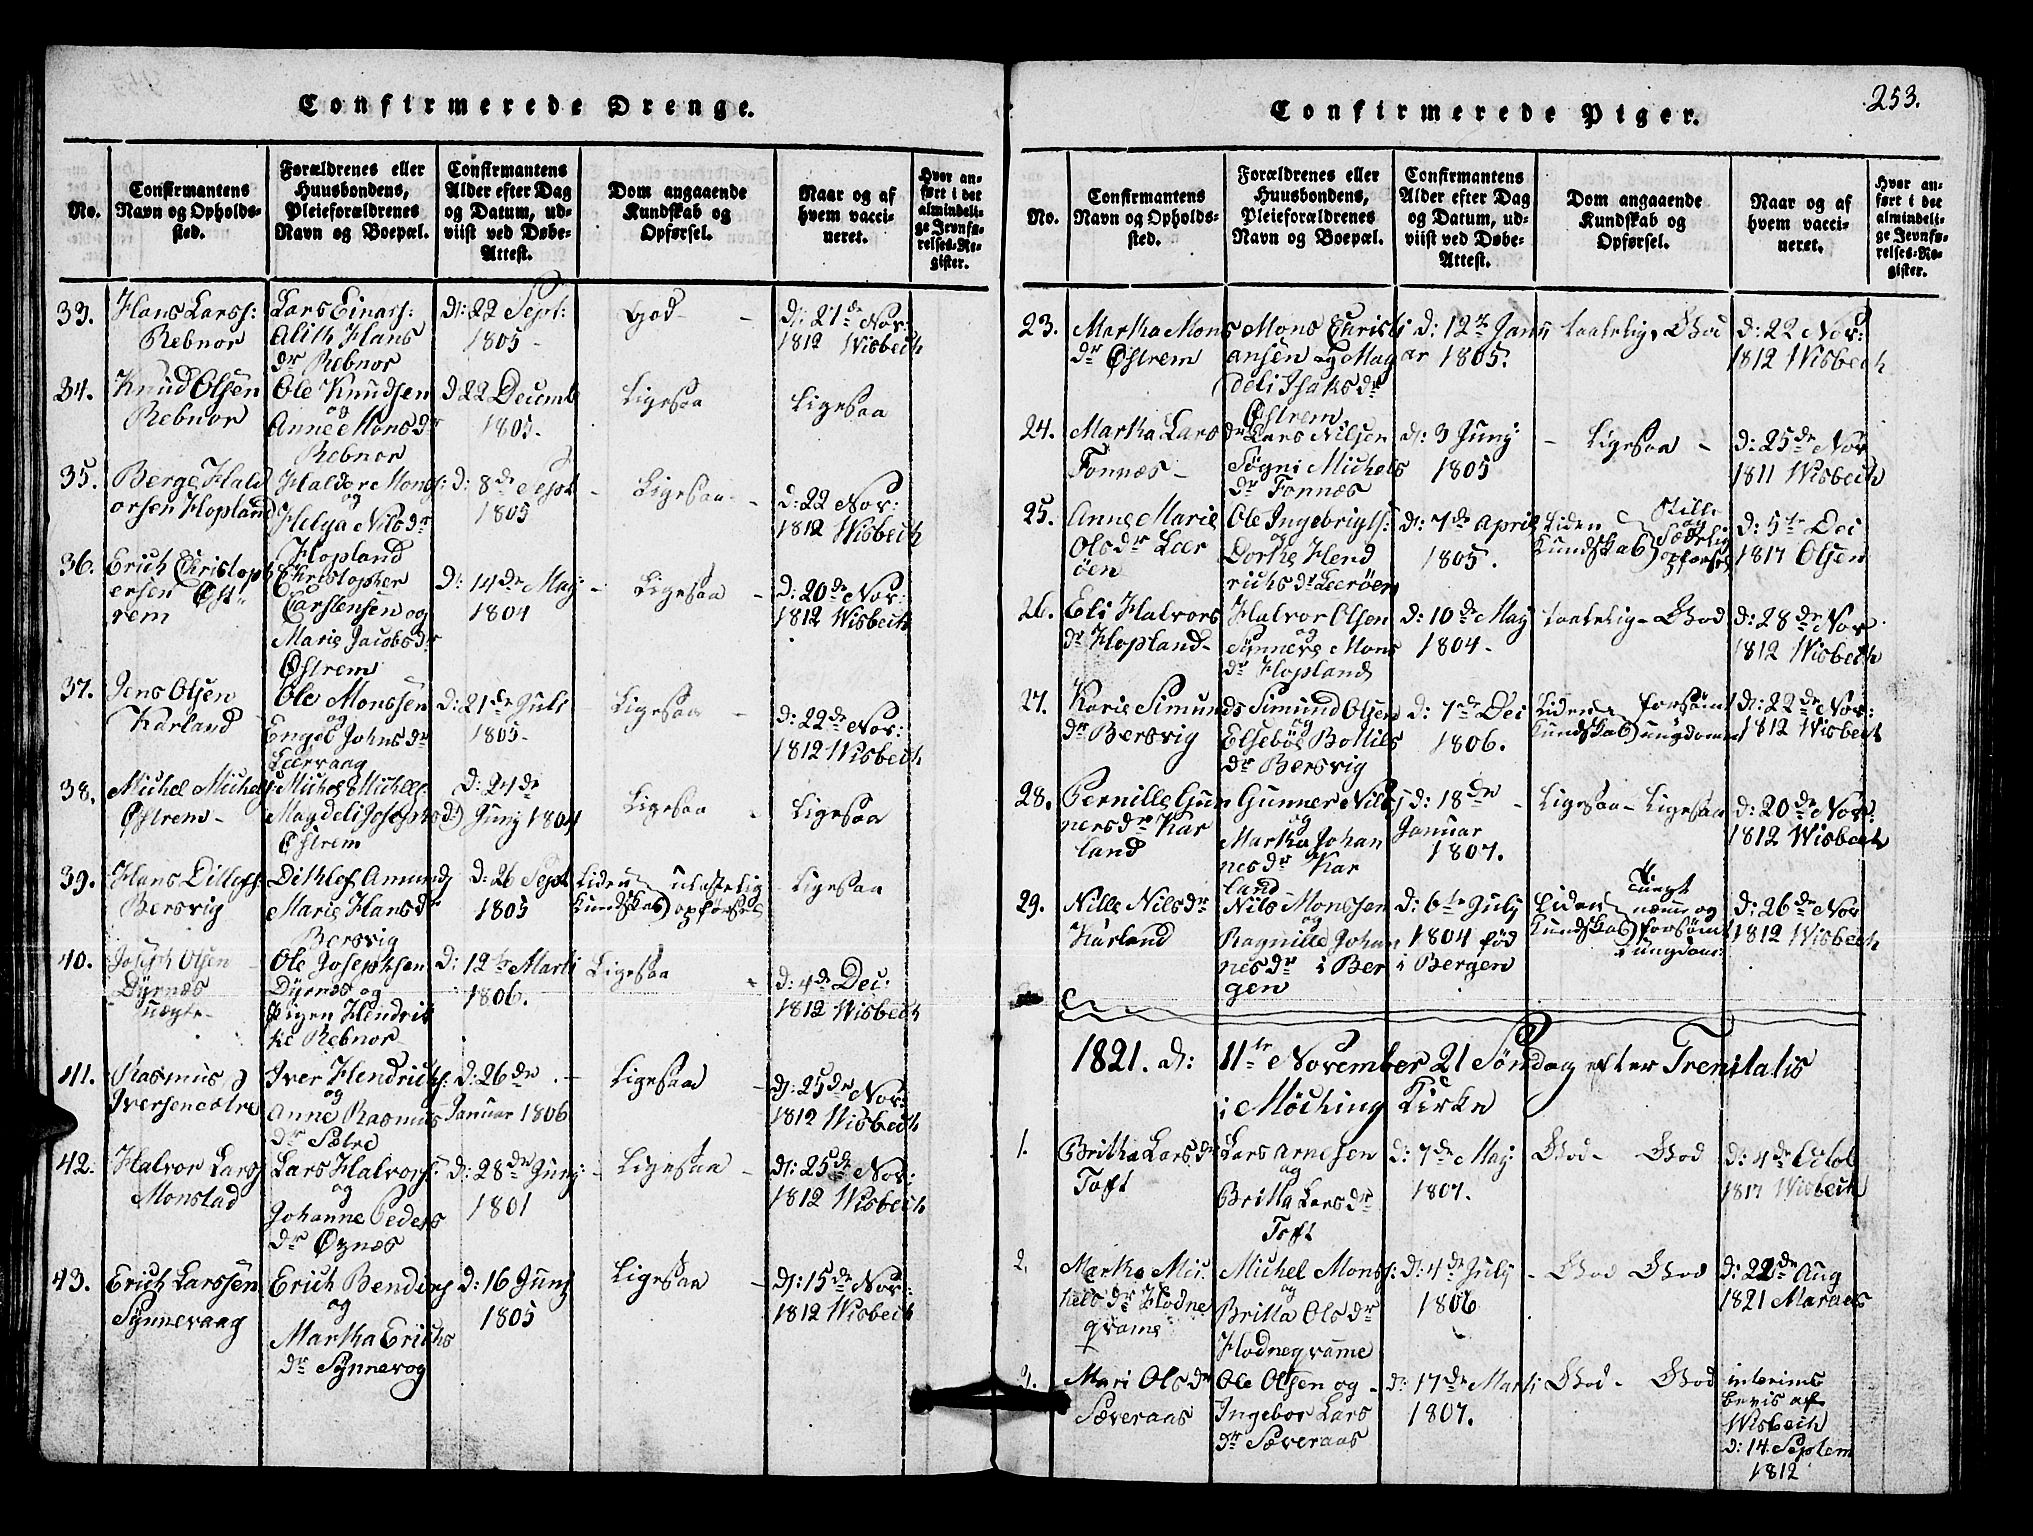 Confirmerede Drenge.
No.
Confirmantens
Navn og Opholds-
sted.
Forældrenes eller
Huusbondens,
Pleieforældrenes
Navn og Boepæl.
Confirmantens
Alder efter Dag
og Datum, ud-
viist ved Døbe-
Attest.
Dom angaaende
Kundskab og
Opførsel.
Naar og af
hvem vacci-
neret.
Hvor an-
ført i det
almindeli-
ge Jevnfø-
relses-Re-
gister.
33.
Hans Larss:
Rebnor
Lars Einarss:
Alith Hans
dr Rebnor
d: 22 Sept:
1805
God
d: 21de Nov:
1812 Wisbech
34.
Knud Olsen
Rebnor
Ole Knudsen
og
Anne Monsdr
Rebnor
d 22 Decemb
1805.
Ligesaa
Ligesaa
35.
Berge Hald
orsen Hopland
Haldor Monss:
og
Helga Nilsdr
Hopland
d: 8de Sept
1805
Ligesaa
d: 22 Nov:
1812 Wisbech
36.
Erich Christoph
ersen Øst
rem
Christopher
Carstensen og
Marie Jacobsdr
Østrem
d: 14de May
1804
Ligesaa
d: 20de Nov:
1812 Wisbech
37.
Jens Olsen
Karland
Ole Monssen
og
Engel Johnsdr
Leervaag
d: 21de Juli
1805.
Ligesaa
d: 22de Nov:
1812 Wisbech
38.
Michel Michels:
Østrem
Michel Michels
Magdeli Josephsd:
Østrem
d: 24de
Juny 1804
Ligesaa
Ligesaa
39.
Hans Ditlefs:
Bersvig
Dithlef Amunds
Marie Hansdr
Bersvig
d: 26 Sept
1805
Liden
Kundskab
opførsel
Ligesaa
40.
Joseph Olsen
Dyrnæs
Ole Josephsen
Dyrnæs og
Pigen Hendrik
ke Rebnor
d: 12te Marti
1806.
Ligesaa
d: 4de Dec:
1812 Wisbech
41.
Rasmus
Iversen Sætre
Iver Hendrichs:
og
Anne Rasmus
dr Sætre
d: 26de
Januar 1806
Ligesaa
d: 25de Nov:
1812 Wisbech
42.
Halvor Larss
Monstad
Lars Halvorss:
og
Johanne Peders
dr Øznæs
d: 28de Juny
1801
Ligesaa
d: 25de Nov:
1812 Wisbech
43.
Erich Larssen
Synnevaag
Erich Bendixs
og
Martha Erichs
dr Synnevog
d: 16 Juny
1805
Ligesaa
d: 15de Nov:
1812 Wisbech
253.
Confirmerede Piger.
No.
Confirmantens
Navn og Opholds-
sted.
Forældrenes eller
Huusbondens,
Pleieforældrenes
Navn og Boepæl.
Confirmantens
Alder efter Dag
og Datum, ud-
viist ved Døbe-
Attest.
Dom angaaende
Kundskab og
Opførsel.
Naar og af
hvem vacci-
neret.
Hvor an-
ført i det
almindeli-
ge Jevnfø-
relses-Re-
gister.
23.
Martha Mons
dr Østrem
Mons Christi
ansen og Mag
deli Isaksdr
Østrem
d: 12te Janu
ar 1805.
taalelig God
d: 22 Nov:
1812 Wisbech
24.
Martha Lars dr
Fonnæs
Lars Nilsen
Søgni Michels
dr Fonnæs
d: 3 Juny
1805
Ligesaa
d: 25de Nov
1811 Wisbech
25.
Anne Marie
Olsdr Leer
öen
Ole Ingebrigts:
og
Dorthe Hend
richsdr Leeröen
d: 7de April
1805.
Liden
Kundskab
Stille
og
Sædelig
opførsel
d: 5te Dec
1817 Olsen
26.
Eli Halvors
dr Hopland
Halvor Olsen
og
Synneve Mons
dr Hopland
d: 10de May
1804.
taalelig God
d: 28de Nov
1812 Wisbech
27.
Karie Simunds
dr Bersvig
Simund Olsen
og
Elseböe Botties
dr Bersvig
d: 7de Dec
1806.
Liden
Kundskab
forsömt
ungdommen
d: 22de Nov:
1812 Wisbech
28.
Pernille Gun
nersdr Kar
land
Gunner Nils
og
Martha Johan
nesdr Kar
land
d: 18de
Januar
1807.
Ligesaa Ligesaa
d: 20de Nov:
1812 Wisbech
29.
Nille Nilsdr
Karland
Nils Monssen
og
Ragnille Johan
nesdr i Ber
gen
d: 6te July
1804 fød
i Bergen
Liden
Kundskab
tungt
nemme og
forsømt
Ungdom
d: 26de Nov
1812 Wisbech
1821. d: 11te November 21 Søndag efter Trenitatis
i Möching Kirke
1.
Britha Larsdr
Toft
Lars Arnesen
og
Britta Larsdr
Toft
d: 7de May
1807.
God God
d: 4de Octob
1817 Wisbech
2.
Martha Mic
helsdr Hodne
qvame
Michel Monss:
og
Britta Olsdr
Hodneqvame
d: 4de July
1806
God God
d: 22de Aug
1821 Maraes
3.
Mari Olsdr
Sæveraas
Ole Olsen og
Ingebor Lars
dr Sæveraas
d: 17de Marti
1807.
God God
interims
bevis af
Wisbech
d: 14 Septem
1812